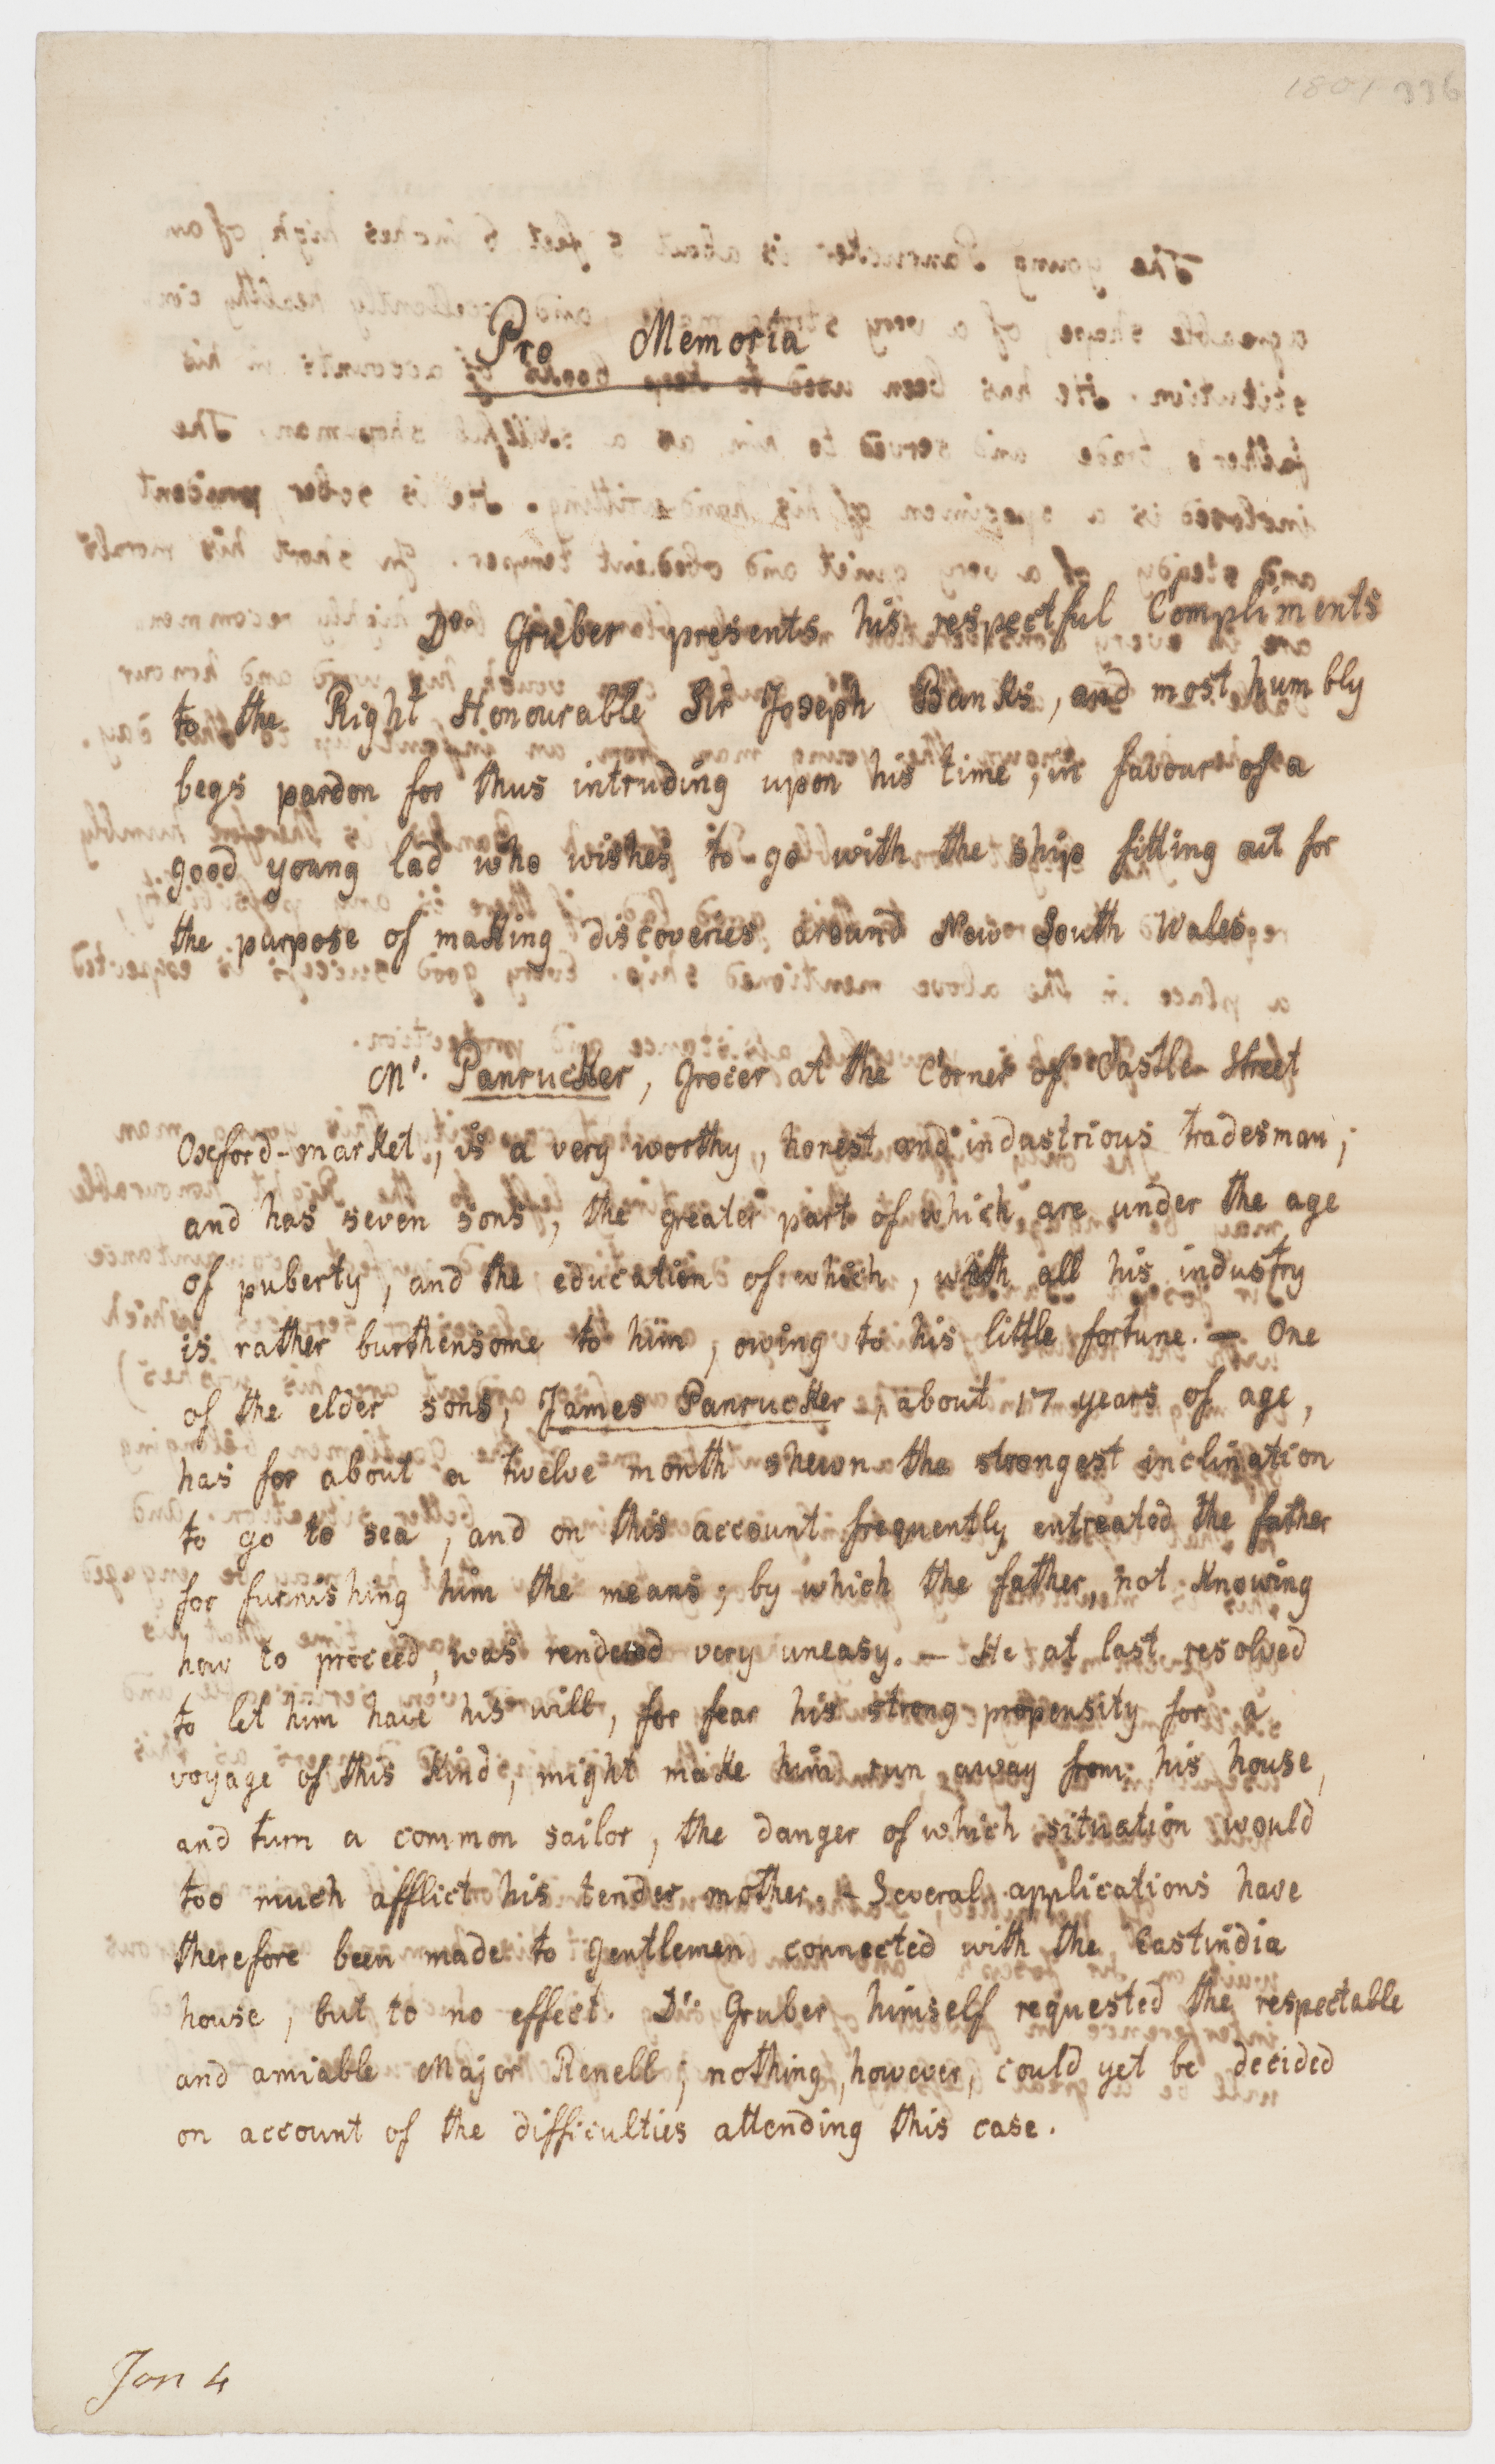 1801 336
Pro Memoria
Dr. Gruber presents his respectful Compliments
to the Right Honourable Sir Joseph Banks, and most humbly
begs pardon for thus intruding upon his time, in favour of a
good young lad who wishes to go with the ship fitting out for
the purpose of making discoveries around New South Wales.
Mr. Panrucker, Grocer at the Corner of Castle-Street
Oxford-market, is a very worthy, honest and industrious tradesman;
and has seven sons, the greater part of which are under the age
of puberty, and the education of which, with all his industry
is rather burthensome to him, owing to his little fortune. — One
of the elder sons, James Panrucker, about 17 years of age,
has for about a twelve month shewn the strongest inclination
to go to sea, and on this account frequently entreated the father
for furnishing him the means; by which the father, not knowing
how to proceed, was rendered very uneasy. — He at last resolved
to let him have his will, for fear his strong propensity for a
voyage of this kind, might make him run away from his house,
and turn a common sailor, the danger of which situation would
too much afflict his tender mother. — Several applications have
therefore been made to gentlemen connected with the Eastindia
house, but to no effect. Dr. Gruber himself requested the respectable
and amiable Major Renell; nothing, however, could yet be decided
on account of the difficulties attending this case.
Jan 4